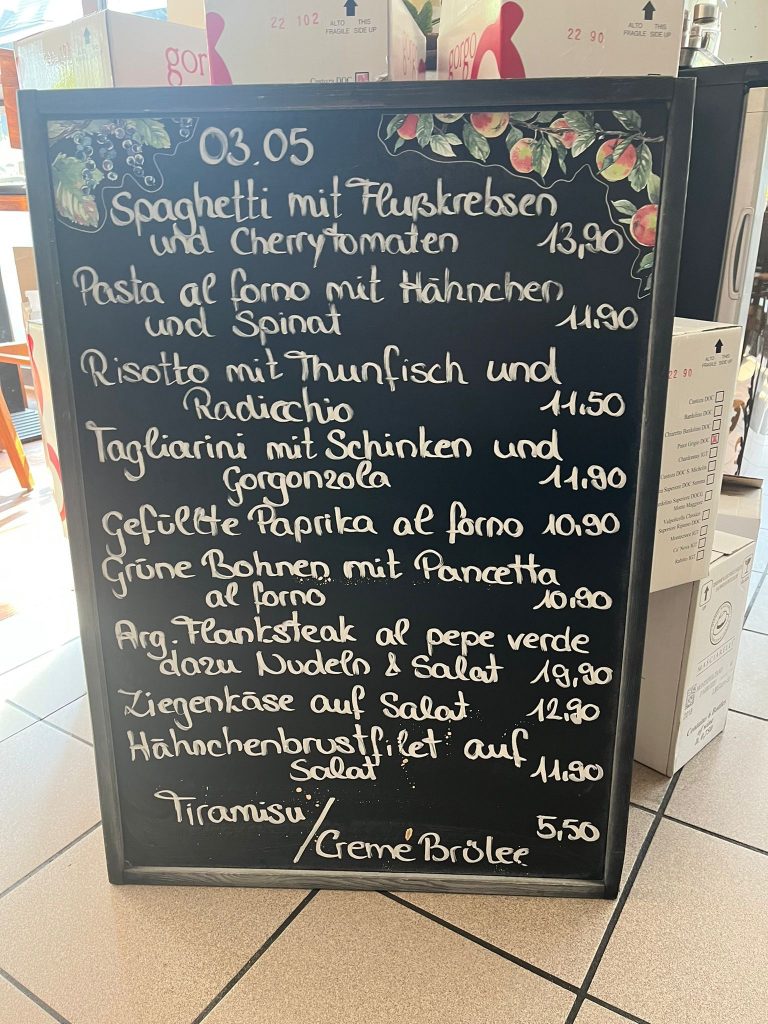 22 102
ALTO THIS
FRAGILE SIDE UP
gor
gorgo
22 90
ALTO THIS
FRAGILE SIDE UP
Custoza DOC
03.05
Spaghetti mit Flußkrebsen
und Cherrytomaten 13,90
Pasta al forno mit Hähnchen
und Spinat 11.90
Risotto mit Thunfisch und
Radicchio 11.50
Tagliarini mit Schinken und
Gorgonzola 11.90
Gefüllte Paprika al forno 10,90
Grüne Bohnen mit Pancetta
al forno 10,90
Arg. Flanksteak al pepe verde
dazu Nudeln & Salat 19,90
Ziegenkäse auf Salat 12,90
Hähnchenbrustfilet auf
Salat 11.90
Tiramisu / 5,50
Cremé Brölee
ALTO THIS
FRAGILE SIDE UP
22 90
Custoza DOC
Bardolino DOC
Chiaretto Bardolino DOC
Pinot Grigio DOC
Chardonnay IGT